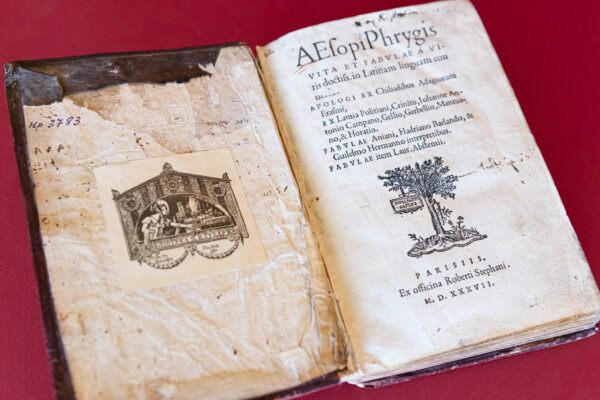 Hp 3783
AEsopi Phrygis
VITA ET FABVLAE A VI-
ris doctiss. in Latinam linguam con
uersae.
APOLOGI EX Chiliadibus Adagiorum
Erasmi,
EX Lamia Politiani, Crinito, Iohanne An-
tonio Campano, Gellio, Gerbellio, Mantua-
no, & Horatio.
FABVLAE Aniani, Hadriano Barlando, &
Guilelmo Hermanno interpretibus.
FABVLAE item Laur. Abstemii.
NOLI ALTVM
SAPERE
PARISIIS,
Ex officina Roberti Stephani.
M. D. XXXVII.